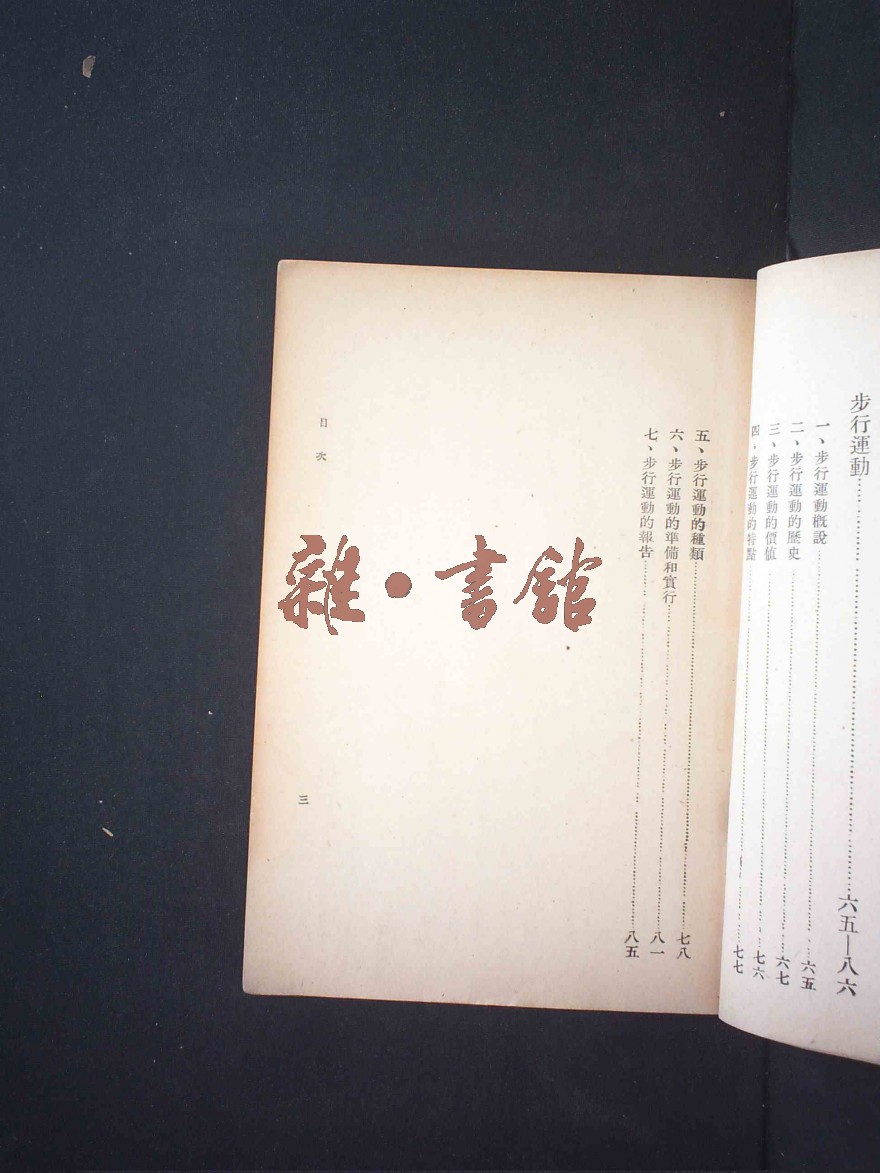 步行運動…………六五—八六
一、步行運動概說…………六五
二、步行運動的歷史…………六七
三、步行運動的價值…………七六
四、步行運動的特點…………七七
五、步行運動的種類…………七八
六、步行運動的準備和實行…………八一
七、步行運動的報告…………八五
目次
三
雜•書館